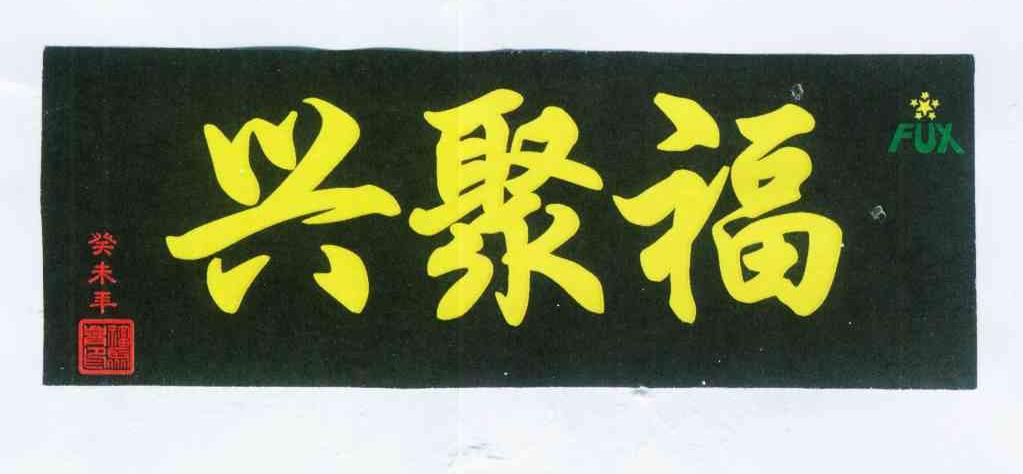 福聚兴
FUX
癸未年